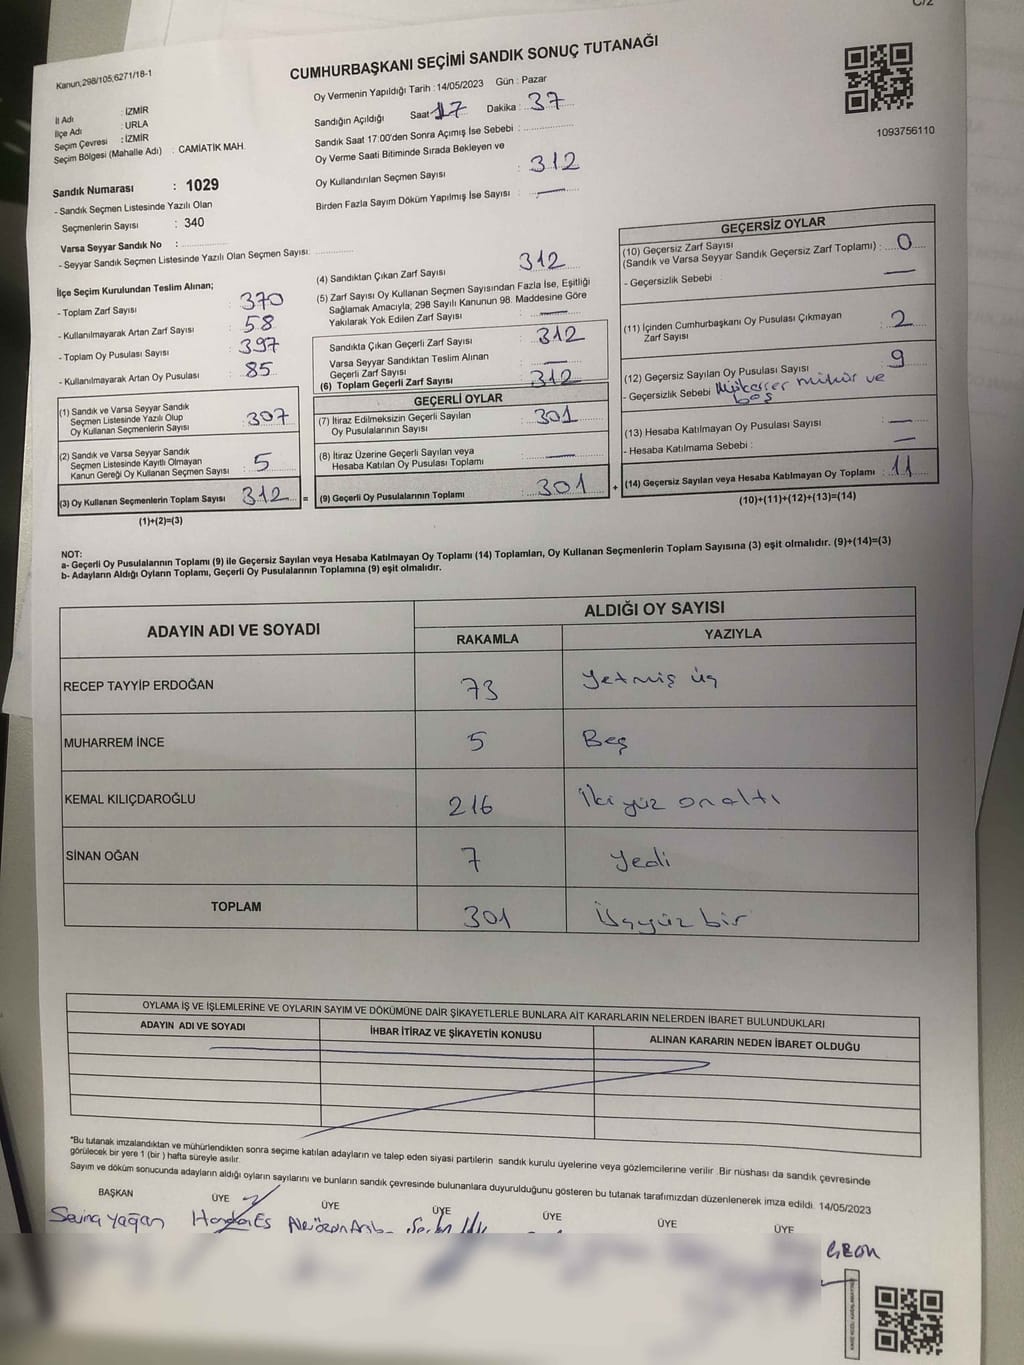 C/2
Kanun;298/105;6271/18-1
CUMHURBAŞKANI SEÇİMİ SANDIK SONUÇ TUTANAĞI
Oy Vermenin Yapıldığı Tarih : 14/05/2023 Gün : Pazar
İl Adı : İZMİR
İlçe Adı : URLA
Seçim Çevresi : İZMİR
Seçim Bölgesi (Mahalle Adı) : CAMİATİK MAH.
Sandığın Açıldığı Saat 17 Dakika : 37
Sandık Saat 17:00'den Sonra Açımış İse Sebebi :
Oy Verme Saati Bitiminde Sırada Bekleyen ve
Oy Kullandırılan Seçmen Sayısı : 312
Birden Fazla Sayım Döküm Yapılmış İse Sayısı : —
1093756110
Sandık Numarası : 1029
- Sandık Seçmen Listesinde Yazılı Olan
Seçmenlerin Sayısı : 340
Varsa Seyyar Sandık No :
- Seyyar Sandık Seçmen Listesinde Yazılı Olan Seçmen Sayısı:
İlçe Seçim Kurulundan Teslim Alınan;
- Toplam Zarf Sayısı : 370
- Kullanılmayarak Artan Zarf Sayısı : 58
- Toplam Oy Pusulası Sayısı : 397
- Kullanılmayarak Artan Oy Pusulası : 85
(1) Sandık ve Varsa Seyyar Sandık
Seçmen Listesinde Yazılı Olup
Oy Kullanan Seçmenlerin Sayısı : 307
(2) Sandık ve Varsa Seyyar Sandık
Seçmen Listesinde Kayıtlı Olmayan
Kanun Gereği Oy Kullanan Seçmen Sayısı : 5
(3) Oy Kullanan Seçmenlerin Toplam Sayısı : 312 =
(1)+(2)=(3)
(4) Sandıktan Çıkan Zarf Sayısı : 312
(5) Zarf Sayısı Oy Kullanan Seçmen Sayısından Fazla İse, Eşitliği
Sağlamak Amacıyla; 298 Sayılı Kanunun 98. Maddesine Göre
Yakılarak Yok Edilen Zarf Sayısı : —
Sandıkta Çıkan Geçerli Zarf Sayısı : 312
Varsa Seyyar Sandıktan Teslim Alınan
Geçerli Zarf Sayısı : —
(6) Toplam Geçerli Zarf Sayısı : 312
GEÇERLİ OYLAR
(7) İtiraz Edilmeksizin Geçerli Sayılan
Oy Pusulalarının Sayısı : 301
(8) İtiraz Üzerine Geçerli Sayılan veya
Hesaba Katılan Oy Pusulası Toplamı : —
(9) Geçerli Oy Pusulalarının Toplamı : 301 +
GEÇERSİZ OYLAR
(10) Geçersiz Zarf Sayısı
(Sandık ve Varsa Seyyar Sandık Geçersiz Zarf Toplamı) : 0
- Geçersizlik Sebebi : —
(11) İçinden Cumhurbaşkanı Oy Pusulası Çıkmayan
Zarf Sayısı : 2
(12) Geçersiz Sayılan Oy Pusulası Sayısı : 9
- Geçersizlik Sebebi Mükerrer mühür ve
boş
(13) Hesaba Katılmayan Oy Pusulası Sayısı : —
- Hesaba Katılmama Sebebi : —
(14) Geçersiz Sayılan veya Hesaba Katılmayan Oy Toplamı : 11
(10)+(11)+(12)+(13)=(14)
NOT:
a- Geçerli Oy Pusulalarının Toplamı (9) ile Geçersiz Sayılan veya Hesaba Katılmayan Oy Toplamı (14) Toplamları, Oy Kullanan Seçmenlerin Toplam Sayısına (3) eşit olmalıdır. (9)+(14)=(3)
b- Adayların Aldığı Oyların Toplamı, Geçerli Oy Pusulalarının Toplamına (9) eşit olmalıdır.
ADAYIN ADI VE SOYADI
ALDIĞI OY SAYISI
RAKAMLA YAZIYLA
RECEP TAYYİP ERDOĞAN 73 Yetmiş üç
MUHARREM İNCE 5 Beş
KEMAL KILIÇDAROĞLU 216 İki yüz on altı
SİNAN OĞAN 7 Yedi
TOPLAM 301 Üçyüz bir
OYLAMA İŞ VE İŞLEMLERİNE VE OYLARIN SAYIM VE DÖKÜMÜNE DAİR ŞİKAYETLERLE BUNLARA AİT KARARLARIN NELERDEN İBARET BULUNDUKLARI
ADAYIN ADI VE SOYADI İHBAR İTİRAZ VE ŞİKAYETİN KONUSU ALINAN KARARIN NEDEN İBARET OLDUĞU
*Bu tutanak imzalandıktan ve mühürlendikten sonra seçime katılan adayların ve talep eden siyasi partilerin sandık kurulu üyelerine veya gözlemcilerine verilir .Bir nüshası da sandık çevresinde
görülecek bir yere 1 (bir ) hafta süreyle asılır.
Sayım ve döküm sonucunda adayların aldığı oyların sayılarını ve bunların sandık çevresinde bulunanlara duyurulduğunu gösteren bu tutanak tarafımızdan düzenlenerek imza edildi. 14/05/2023
BAŞKAN ÜYE ÜYE ÜYE ÜYE ÜYE ÜYE